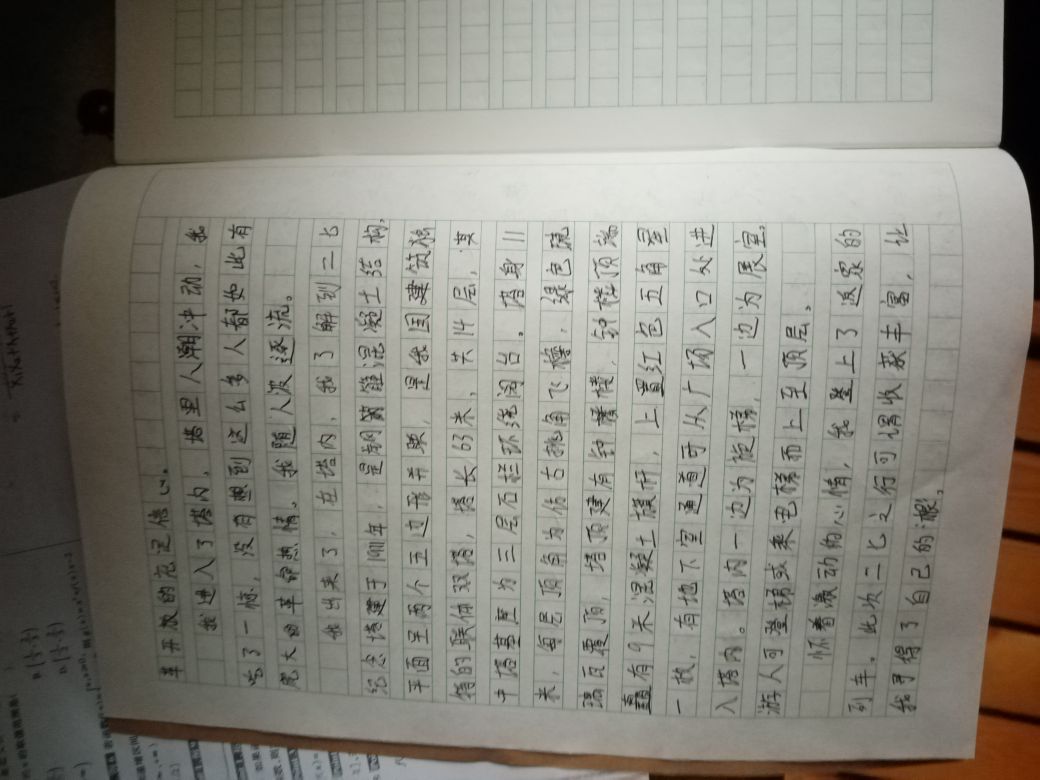 革开放的充足信心。
我进入了塔内，塔里人潮冲动，我
吃了一惊，没有想到这么多人都如此有
庞大的革命热情。我随人波逐流。
我出来了，在塔内，我了解到二七
纪念塔建于1971年，是钢筋混凝土结构，
平面呈两个五边形并联，是我国建筑独
特的联体双塔，塔长63米，共14层，其
中塔基座为三层石栏环绕阁台。塔身11
米，每层顶角为仿古挑角飞檐，绿色琉
璃瓦覆顶，塔顶建有钟楼，钟楼顶端
有9米混凝土旗杆，上置红色五角星
一枚，有地下室通道可从广场入口处进
入塔内。塔内一边为旋梯，一边为展室。
游人可登梯或乘电梯而上至顶层。
怀着激动的心情，我登上了返家的
列车。此次二七之行可谓收获丰富，让
我寻得了自己的根。